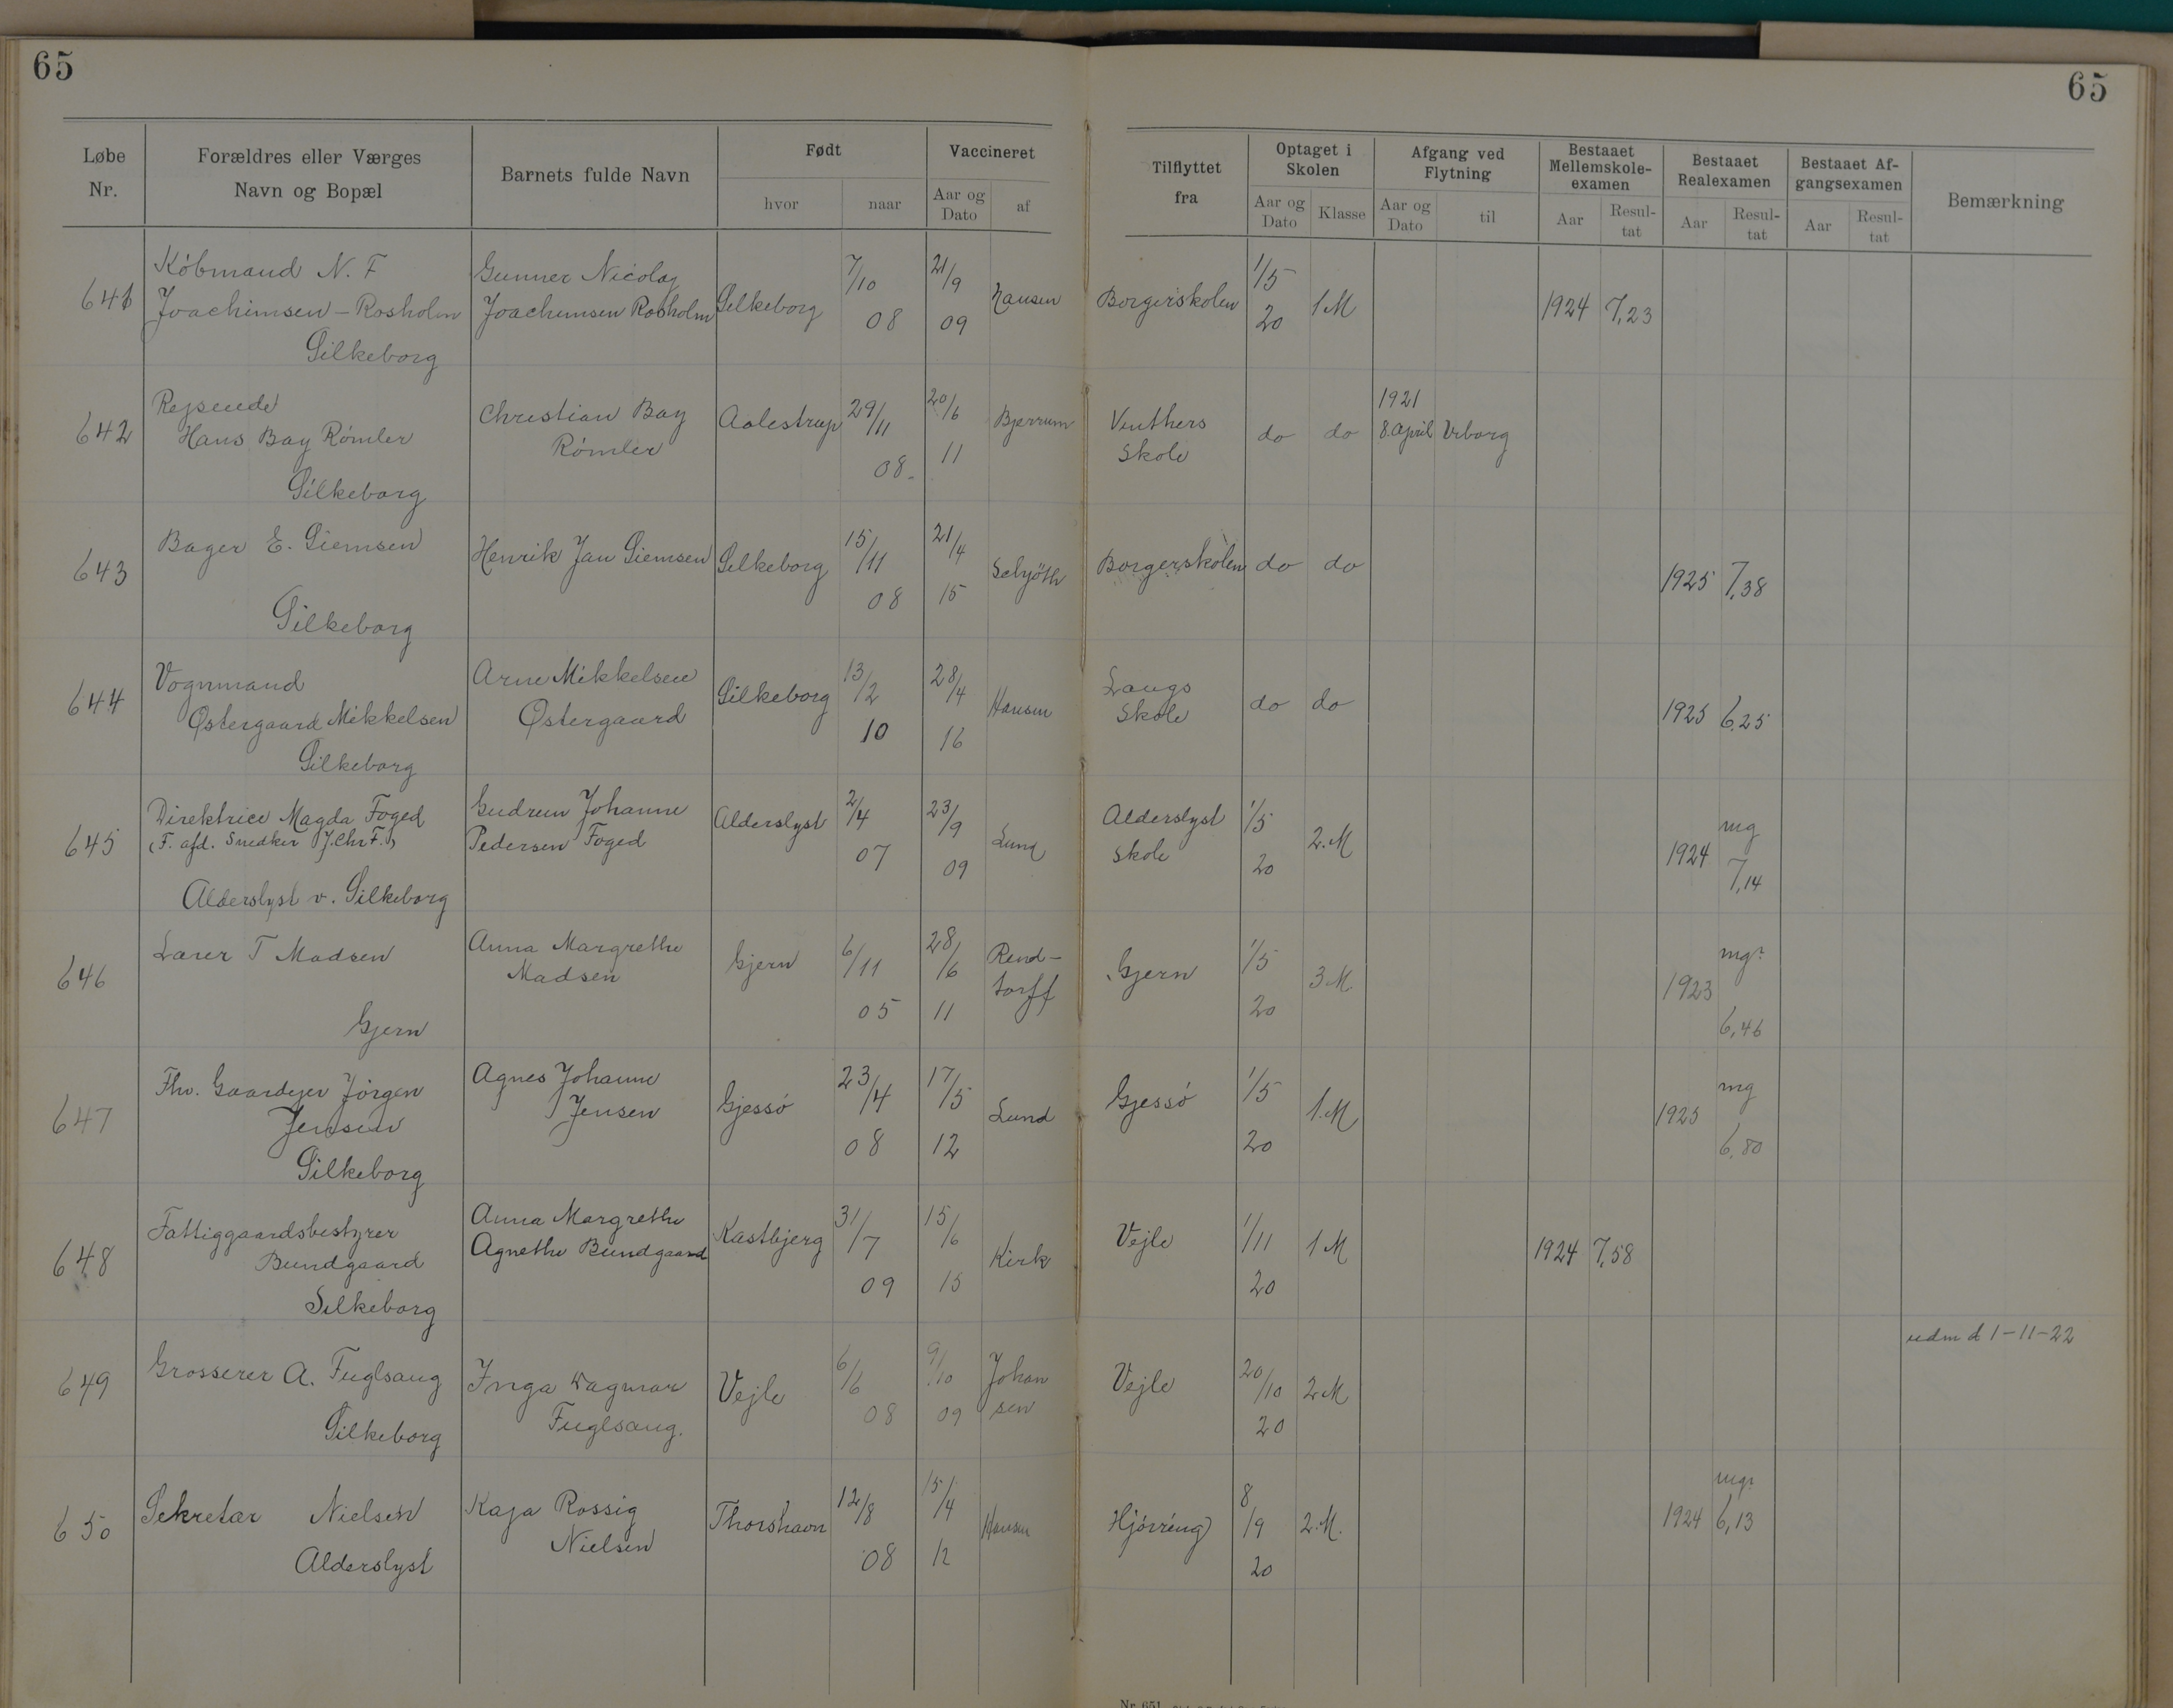 65
65
Løbe Nr.
Forældres eller Værges Navn og Bopæl
Barnets fulde Navn
Født
hvor
naar
Vaccineret
Aar og Dato
af
Tilflyttet fra
Optaget i Skolen
Aar og Dato
Klasse
Afgang ved Flytning
Aar og Dato
til
Bestaaet Mellemskole-examen
Aar
Resul-tat
Bestaaet Realexamen
Aar
Resul-tat
Bestaaet Af-gangsexamen
Aar
Resul-tat
Bemærkning
641 Købmand N. F Gunner Nicolaj 7/10 21/9 1/5
Joachimsen-Rosholm Joachimsen Rosholm Silkeborg 08 09 Hansen Borgerskolen 20 1M 1924 7,23
Silkeborg
642 Rejsende Christian Bay Aalestrup 29/11 20/6 Bjerrum Venthers do do 1921
Hans Bay Römler Römler 08- 11 Skole 8. April Viborg
Silkeborg
643 Bager E. Siemsen Henrik Jan Siemsen Silkeborg 15/11 21/4 Borgerskolen do do 1925 7,38
08 15
Silkeborg
644 Vognmand Arne Mikkelsen Silkeborg 13/2 28/4 Hansen Langs do do 1925 6,25
Østergaard Mikkelsen Østergaard 10 16 Skole
Silkeborg
645 Direktrice Magda Foged Gudrun Johanne Alderslyst 2/4 23/9 Lund Alderslyst 1/5 2.M 1924 mg
(F. afd. Snedker J. Chr F.) Pedersen Foged 07 09 Skole 20 7,14
Alderslyst v. Silkeborg
646 Lærer T Madsen Anna Margrethe Gjern 6/11 28/6 Rend- Gjern 1/5 3M 1923 mg?
Madsen 05 11 torff 20 6,46
Gjern
647 Fhv. Gaardejer Jörgen Agnes Johanne Gjessö 23/4 17/5 Lund Gjessö 1/5 1.M 1925 mg
Jensen Jensen 08 12 20 6,80
Silkeborg
648 Fattiggaardsbestyrer Anna Margrethe Kastbjerg 31/7 15/6 Kirk Vejle 1/11 1M 1924 7,58
Bundgaard Agnethe Bundgaard 09 15 20
Silkeborg
649 Grosserer A. Fuglsang Inga Dagmar Vejle 6/6 9/10 Johan Vejle 20/10 2M udm d 1-11-22
Silkeborg Fuglsang. 08 09 sen 20
650 Sekretær Nielsen Kaja Rossig Thorshavn 12/8 15/4 Hansen Hjörring 8/9 2.M. 1924 mg?
Alderslyst Nielsen 08 12 20 6,13
Nr. 651